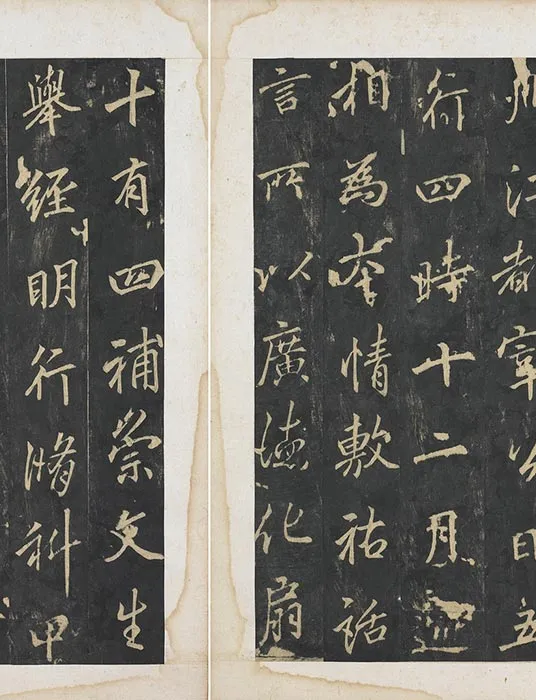 州江都宰公曰五
行四時十二月還
相為本情敷祐話
言所以廣德化扇
十有四補崇文生
舉經明行脩科甲